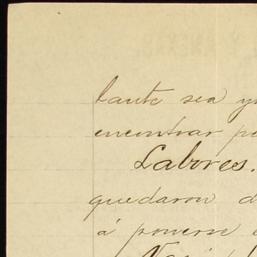 laute sea y
encontrar p
Labores.
quedaron d
á ponerse